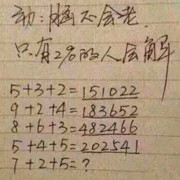 动脑不会老
只有2%的人会解
5+3+2=151022
9+2+4=183652
8+6+3=482466
5+4+5=202541
7+2+5=?